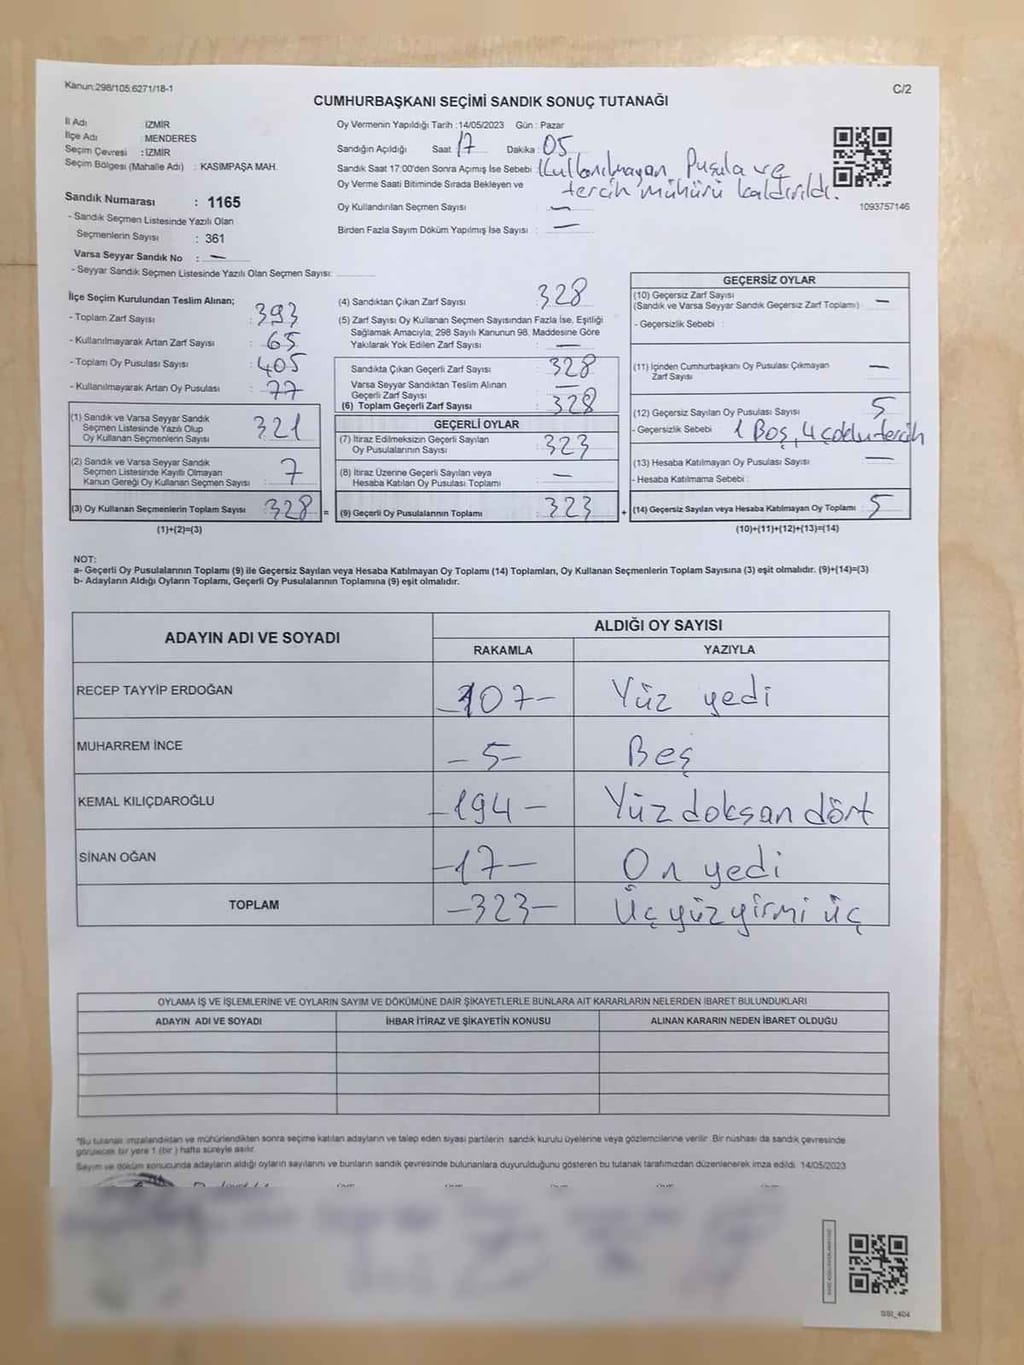 Kanun:298/105,6271/18-1
C/2
CUMHURBAŞKANI SEÇİMİ SANDIK SONUÇ TUTANAĞI
İl Adı : İZMİR
İlçe Adı : MENDERES
Seçim Çevresi : İZMİR
Seçim Bölgesi (Mahalle Adı) : KASIMPAŞA MAH.
Sandık Numarası : 1165
- Sandık Seçmen Listesinde Yazılı Olan
Seçmenlerin Sayısı : 361
Varsa Seyyar Sandık No : —
- Seyyar Sandık Seçmen Listesinde Yazılı Olan Seçmen Sayısı:
Oy Vermenin Yapıldığı Tarih :14/05/2023 Gün : Pazar
Sandığın Açıldığı Saat 17 Dakika : 05
Sandık Saat 17:00'den Sonra Açımış İse Sebebi : Kullanılmayan Pusula ve
tercih mühürü kaldırıldı.
Oy Verme Saati Bitiminde Sırada Bekleyen ve
Oy Kullandırılan Seçmen Sayısı : —
Birden Fazla Sayım Döküm Yapılmış İse Sayısı : —
1093757146
İlçe Seçim Kurulundan Teslim Alınan;
- Toplam Zarf Sayısı : 393
- Kullanılmayarak Artan Zarf Sayısı : 65
- Toplam Oy Pusulası Sayısı : 405
- Kullanılmayarak Artan Oy Pusulası : 77
(1) Sandık ve Varsa Seyyar Sandık
Seçmen Listesinde Yazılı Olup
Oy Kullanan Seçmenlerin Sayısı : 321
(2) Sandık ve Varsa Seyyar Sandık
Seçmen Listesinde Kayıtlı Olmayan
Kanun Gereği Oy Kullanan Seçmen Sayısı : 7
(3) Oy Kullanan Seçmenlerin Toplam Sayısı : 328 =
(1)+(2)=(3)
(4) Sandıktan Çıkan Zarf Sayısı : 328
(5) Zarf Sayısı Oy Kullanan Seçmen Sayısından Fazla İse, Eşitliği
Sağlamak Amacıyla; 298 Sayılı Kanunun 98. Maddesine Göre
Yakılarak Yok Edilen Zarf Sayısı : —
Sandıkta Çıkan Geçerli Zarf Sayısı : 328
Varsa Seyyar Sandıktan Teslim Alınan
Geçerli Zarf Sayısı : —
(6) Toplam Geçerli Zarf Sayısı : 328
GEÇERLİ OYLAR
(7) İtiraz Edilmeksizin Geçerli Sayılan
Oy Pusulalarının Sayısı : 323
(8) İtiraz Üzerine Geçerli Sayılan veya
Hesaba Katılan Oy Pusulası Toplamı : —
(9) Geçerli Oy Pusulalarının Toplamı : 323 +
GEÇERSİZ OYLAR
(10) Geçersiz Zarf Sayısı
(Sandık ve Varsa Seyyar Sandık Geçersiz Zarf Toplamı) : —
- Geçersizlik Sebebi :
(11) İçinden Cumhurbaşkanı Oy Pusulası Çıkmayan
Zarf Sayısı : —
(12) Geçersiz Sayılan Oy Pusulası Sayısı : 5
- Geçersizlik Sebebi : 1 Boş, 4 çoklu tercih
(13) Hesaba Katılmayan Oy Pusulası Sayısı : —
- Hesaba Katılmama Sebebi :
(14) Geçersiz Sayılan veya Hesaba Katılmayan Oy Toplamı : 5
(10)+(11)+(12)+(13)=(14)
NOT:
a- Geçerli Oy Pusulalarının Toplamı (9) ile Geçersiz Sayılan veya Hesaba Katılmayan Oy Toplamı (14) Toplamları, Oy Kullanan Seçmenlerin Toplam Sayısına (3) eşit olmalıdır. (9)+(14)=(3)
b- Adayların Aldığı Oyların Toplamı, Geçerli Oy Pusulalarının Toplamına (9) eşit olmalıdır.
ADAYIN ADI VE SOYADI
ALDIĞI OY SAYISI
RAKAMLA YAZIYLA
RECEP TAYYİP ERDOĞAN -107- Yüz yedi
MUHARREM İNCE -5- Beş
KEMAL KILIÇDAROĞLU -194- Yüz doksan dört
SİNAN OĞAN -17- On yedi
TOPLAM -323- Üç yüz yirmi üç
OYLAMA İŞ VE İŞLEMLERİNE VE OYLARIN SAYIM VE DÖKÜMÜNE DAİR ŞİKAYETLERLE BUNLARA AİT KARARLARIN NELERDEN İBARET BULUNDUKLARI
ADAYIN ADI VE SOYADI İHBAR İTİRAZ VE ŞİKAYETİN KONUSU ALINAN KARARIN NEDEN İBARET OLDUĞU
*Bu tutanak imzalandıktan ve mühürlendikten sonra seçime katılan adayların ve talep eden siyasi partilerin sandık kurulu üyelerine veya gözlemcilerine verilir. Bir nüshası da sandık çevresinde
görülecek bir yere 1 (bir ) hafta süreyle asılır.
Sayım ve döküm sonucunda adayların aldığı oyların sayılarını ve bunların sandık çevresinde bulunanlara duyurulduğunu gösteren bu tutanak tarafımızdan düzenlenerek imza edildi. 14/05/2023
SSI_404